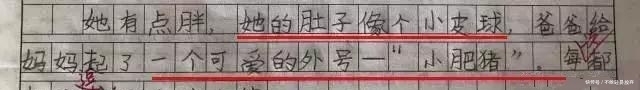 她有点胖，她的肚子像个小皮球，爸爸给
妈妈起了一个可爱的外号—“小肥猪”。每都